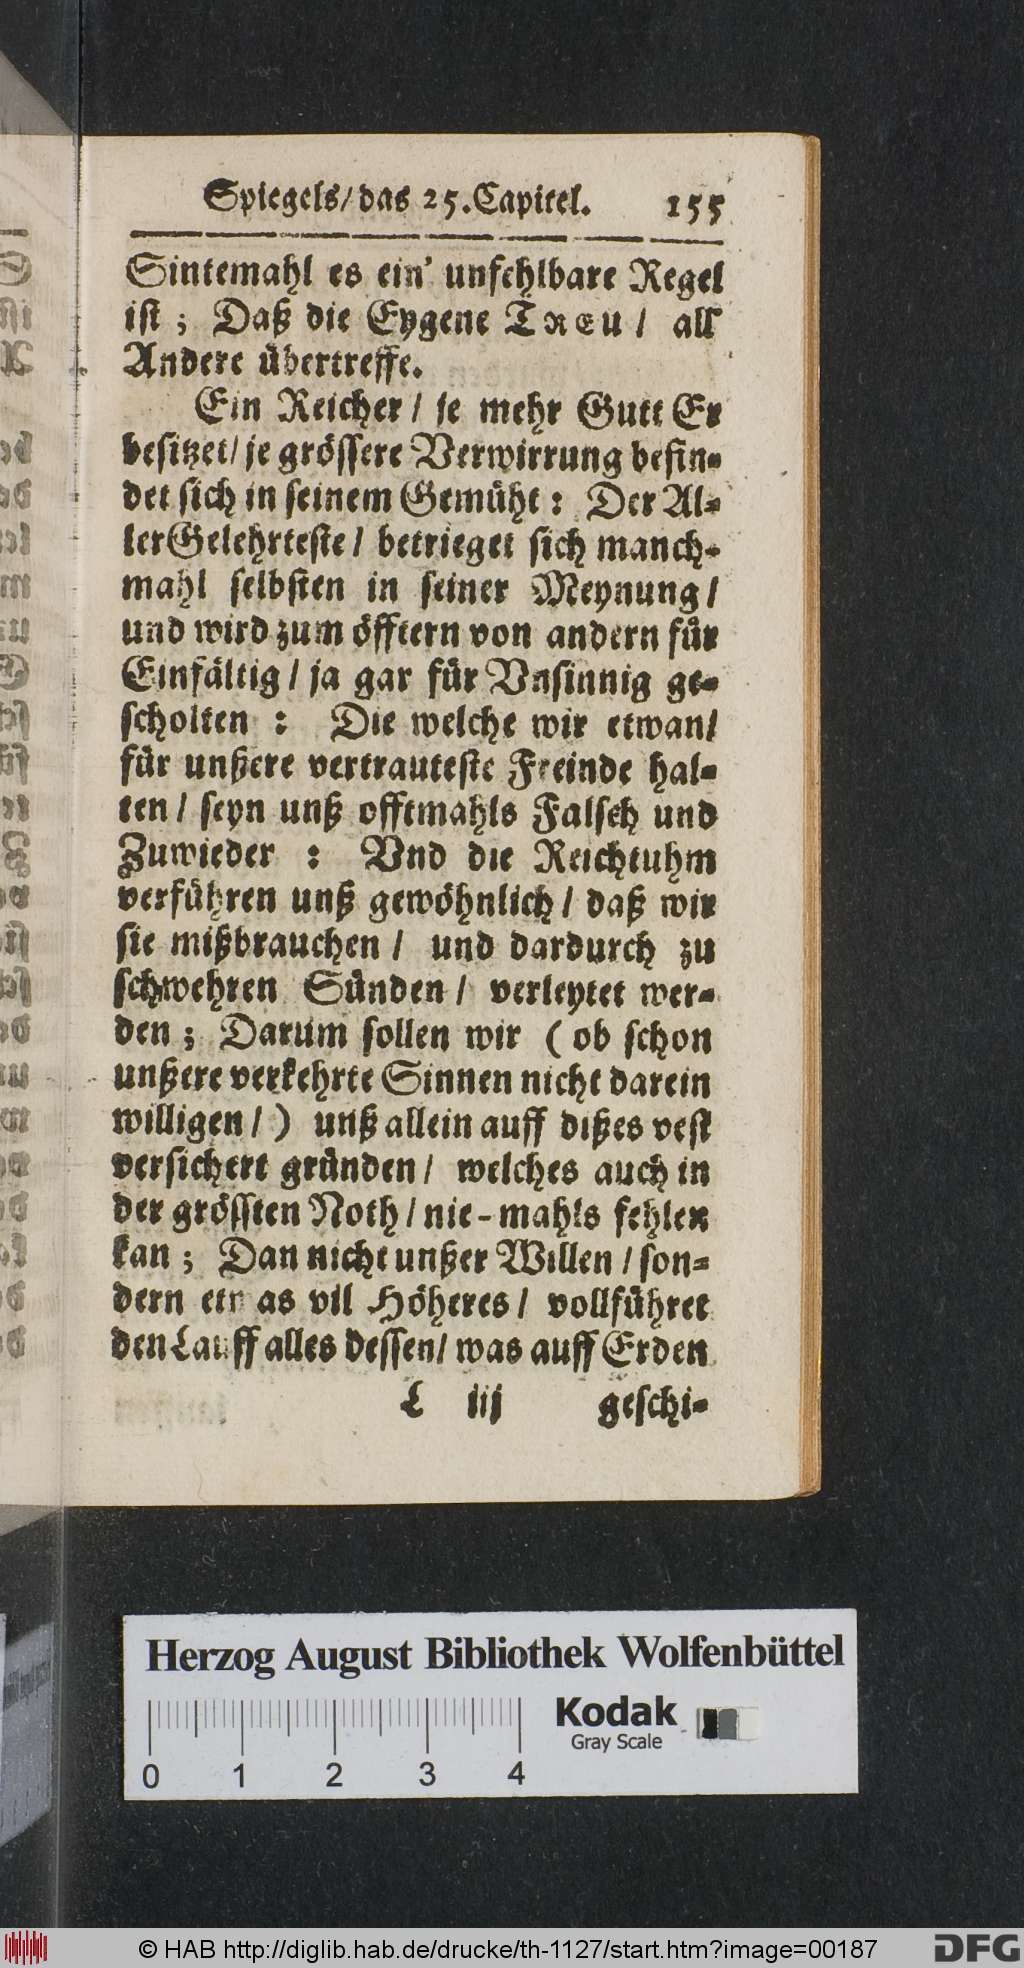 Spiegels/ das 25. Capitel. 155
Sintemahl es ein' unfehlbare Regel
ist ; Daß die Eygene TREU / all
Andere übertreffe.
Ein Reicher / je mehr Gutt Er
besitzet/ je grössere Verwirrung befin-
det sich in seinem Gemüht : Der Al-
lerGelehrteste / betrieget sich manch-
mahl selbsten in seiner Meynung /
und wird zum öfftern von andern für
Einfältig / ja gar für Vnsinnig ge-
scholten : Die welche wir etwan/
für unßere vertrauteste Freinde hal-
ten / seyn unß offtmahls Falsch und
Zuwieder : Vnd die Reichtuhm
verführen unß gewöhnlich / daß wir
sie mißbrauchen / und dardurch zu
schwehren Sünden / verleytet wer-
den ; Darum sollen wir ( ob schon
unßere verkehrte Sinnen nicht darein
willigen / ) unß allein auff dißes vest
versichert gründen / welches auch in
der grössten Noth / nie-mahls fehlen
kan ; Dan nicht unßer Willen / son-
dern etwas vil Höheres / vollführet
den Lauff alles dessen/ was auff Erden
L iij geschi-
Herzog August Bibliothek Wolfenbüttel
0 1 2 3 4
Kodak
Gray Scale
© HAB http://diglib.hab.de/drucke/th-1127/start.htm?image=00187
DFG